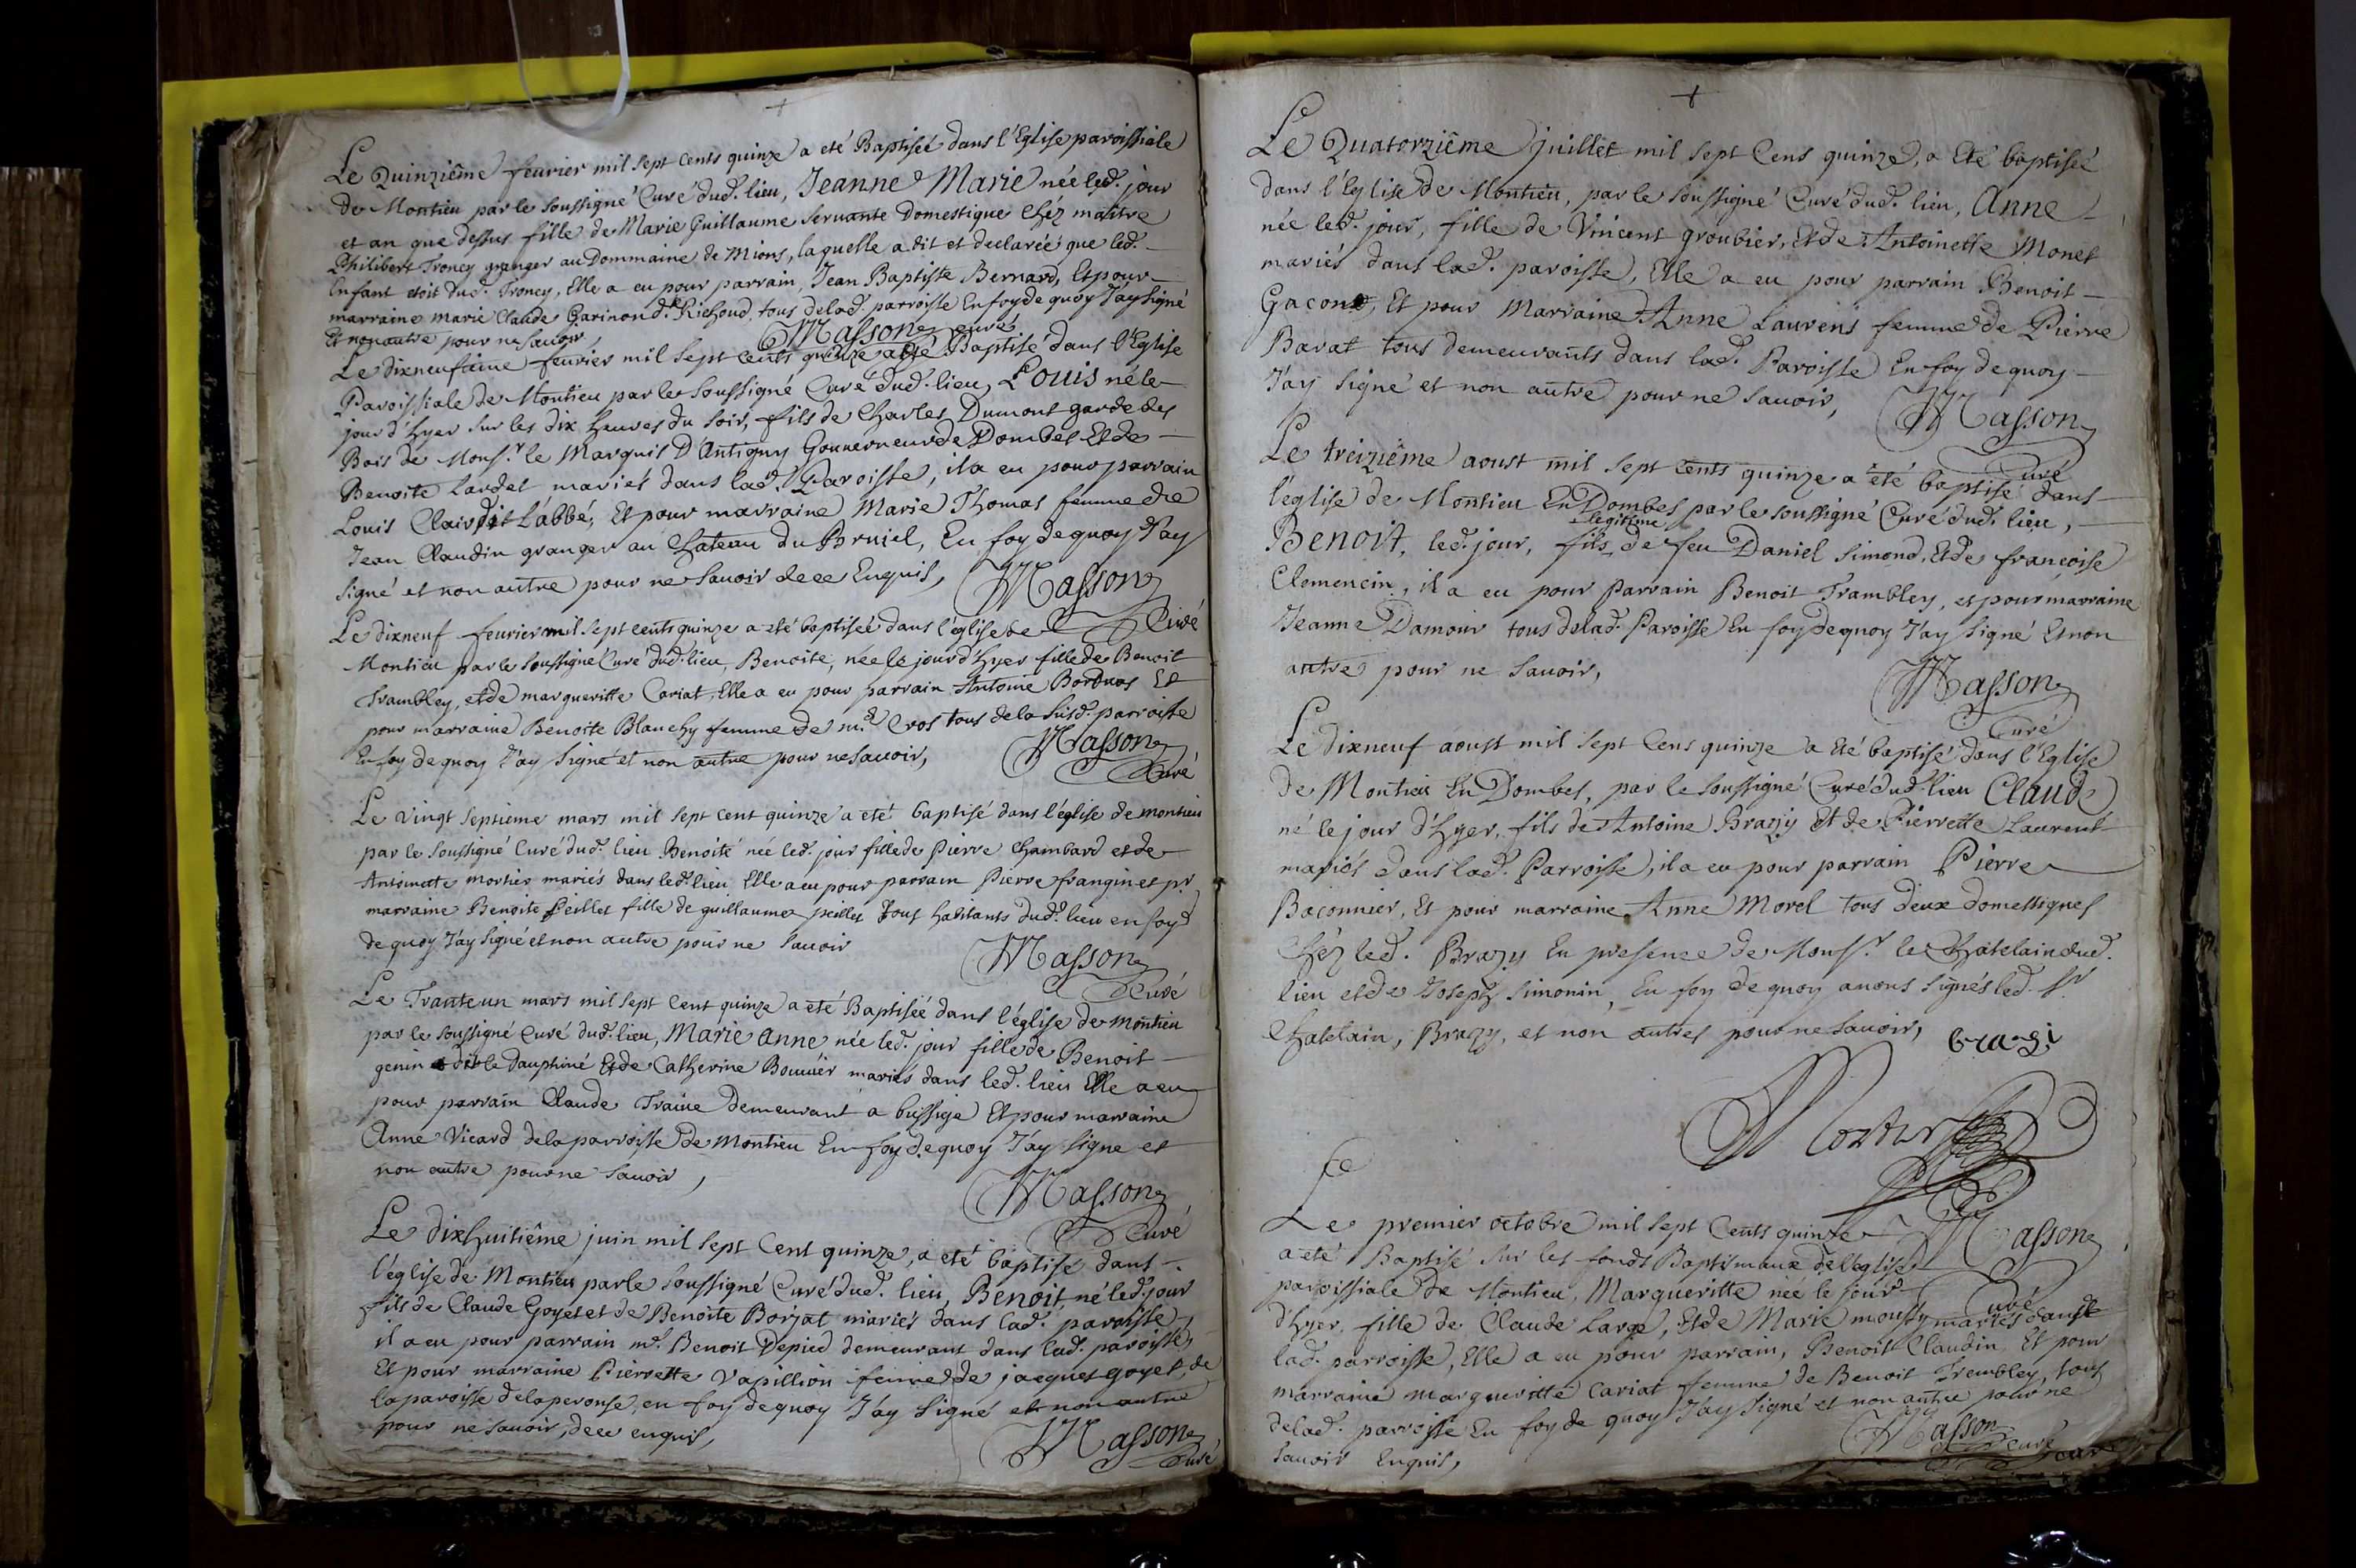 Le Quinziême feurier mil sept cents quinze a eté Baptisée dans l'Eglise paroissiale
de Montieu par le soussigné Curé dud. lieu, Jeanne Marie née led. jour
et an que dessus fille de Marie Guillaume seruante Domestique chéz maitre
Philibert Troncy granger au Dommaine de Mions, laquelle a dit et declarée que led.
Enfant etoit dud. Troncy, Elle a eu pour parrain, Jean Baptiste Bernard, Et pour
marraine marie Claude Garinon d. Richoud, tous de lad. parroisse En foy de quoy J'ay signé
Et non autre pour ne sauoir,
Masson curé
Le dixneufieme feurier mil sept cents quinze a eté Baptisé dans l'Eglise
Paroissiale de Montieu par le soussigné Curé dud. lieu, Louis né le
jour d'hyer sur les dix heures du soir, fils de Charles Dumont garde des
Bois de Mons.r le Marquis D'Antigny Gouuerneur de Dombes Et de
Benoite Lardet mariés dans lad. Paroisse, il a eu pour parrain
Louis Clair dit L'abbé, Et pour marraine Marie Thomas femme de
Jean Claudin granger au Chateau du Bruiel, En foy de quoy J'ay
signé et non autre pour ne sauoir de ce Enquis,
Masson
Curé
Le dixneuf feurier mil sept cents quinze a eté baptisée dans l'église de
Montieu par le soussigné Curé dud. lieu, Benoite, née le jour d'hyer fille de Benoit
Trambley, et de margueritte Cariat, Elle a eu pour parrain Antoine Et
pour marraine Benoite Blanchy femme de m.e Cros tous de la susd. parroisse
En foy de quoy J'ay signé et non autre pour ne sauoir,
Masson
Curé
Le vingt septieme mars mil sept cent quinze a eté baptisé dans l'église de montieu
par le soussigné Curé dud. lieu Benoite née led. jour fille de Pierre Chambard et de
Antoinette mortier mariés dans led. lieu Elle a eu pour parrain Pierre frangin et pr
marraine Benoite peillet fille de guillaume peillet Tous habitants dud. lieu en foy
de quoy J'ay signé et non autre pour ne sauoir
Masson
Curé
Le Trante un mars mil sept cent quinze a eté Baptisée dans l'église de Montieu
par le soussigné Curé dud. lieu, Marie Anne née led. jour fille de Benoit
genin dit le Dauphiné Et de Catherine Bouuiér mariés dans led. lieu Elle a eu
pour parrain Claude Traine demeurant a bussige Et pour marraine
Anne Vicard de la parroisse de Montieu En foy de quoy J'ay signe et
non autre pour ne sauoir,
Masson
Curé
Le dixhuitiême juin mil sept Cent quinze, a eté baptisé dans
l'église de Montieu par le soussigné Curé dud. lieu, Benoit, né led. jour
fils de Claude Goyet et de Benoite Borjat mariés dans lad. paroisse
il a eu pour parrain m.e Benoit Depied demeurant dans lad. paroisse,
Et pour marraine Pierrette Vapillion femme de jacques goyet, de
la paroisse de la perouse, en foy de quoy J'ay signé et non autre
pour ne sauoir, de ce enquis,
Masson
Curé
Le Quatorziême juillet mil sept Cens quinze, a Eté baptisée
dans l'Eglise de Montieu, par le soussigné Curé dud. lieu, Anne
née led. jour, fille de Vincent groubier, Et de Antoinette Monet
mariés dans lad. paroisse, Elle a eu pour parrain Benoit
Gacon, Et pour Marraine Anne Laurens femme de Pierre
Barat tous demeurants dans lad. Paroisse En foy de quoy
J'ay signé et non autre pour ne sauoir,
Masson
Curé
Le treiziême aoust mil sept Cents quinze a été baptisé dans
l'église de Montieu En Dombes par le soussigné Curé dud. lieu,
legitime
Benoit, led. jour, fils de feu Daniel Simond, Et de françoise
Clemencin, il a eu pour Parrain Benoit Trambley, et pour marraine
Jeanne Damour tous de lad. Paroisse En foy de quoy J'ay signé Et non
autre pour ne sauoir,
Masson
Curé
Le dixneuf aoust mil sept Cens quinze a Eté baptisé dans l'Eglise
de Montieu En Dombes, par le soussigné Curé dud. lieu Claude
né le jour d'hyer, fils de Antoine Brazy Et de Pierrette Laurent
mariés dans lad. Parroisse, il a eu pour parrain Pierre
Baconnier, Et pour marraine Anne Morel tous deux domestiques
chéz led. Brazy En presence de Mons.r le Chatelain dud.
lieu et de Joseph Simonin, En foy de quoy auons signés led. Sr
Chatelain, Brazy, et non autres pour ne sauoir,
brazi
Le
Le premier octobre mil sept Cents quinze
Masson
a eté Baptisé sur les fonds Baptismaux de l'eglise
Curé
paroissiale de Montieu, Margueritte née le jour
d'hyer, fille de Claude Large, Et de Marie mousty mariés dans
lad. parroisse, Elle a eu pour parrain, Benoit Claudin Et pour
marraine margueritte Cariat femme de Benoit Trembley, tous
de lad. parroisse En foy de quoy J'ay signé et non autre pour ne
sauoir Enquis,
Masson
curé